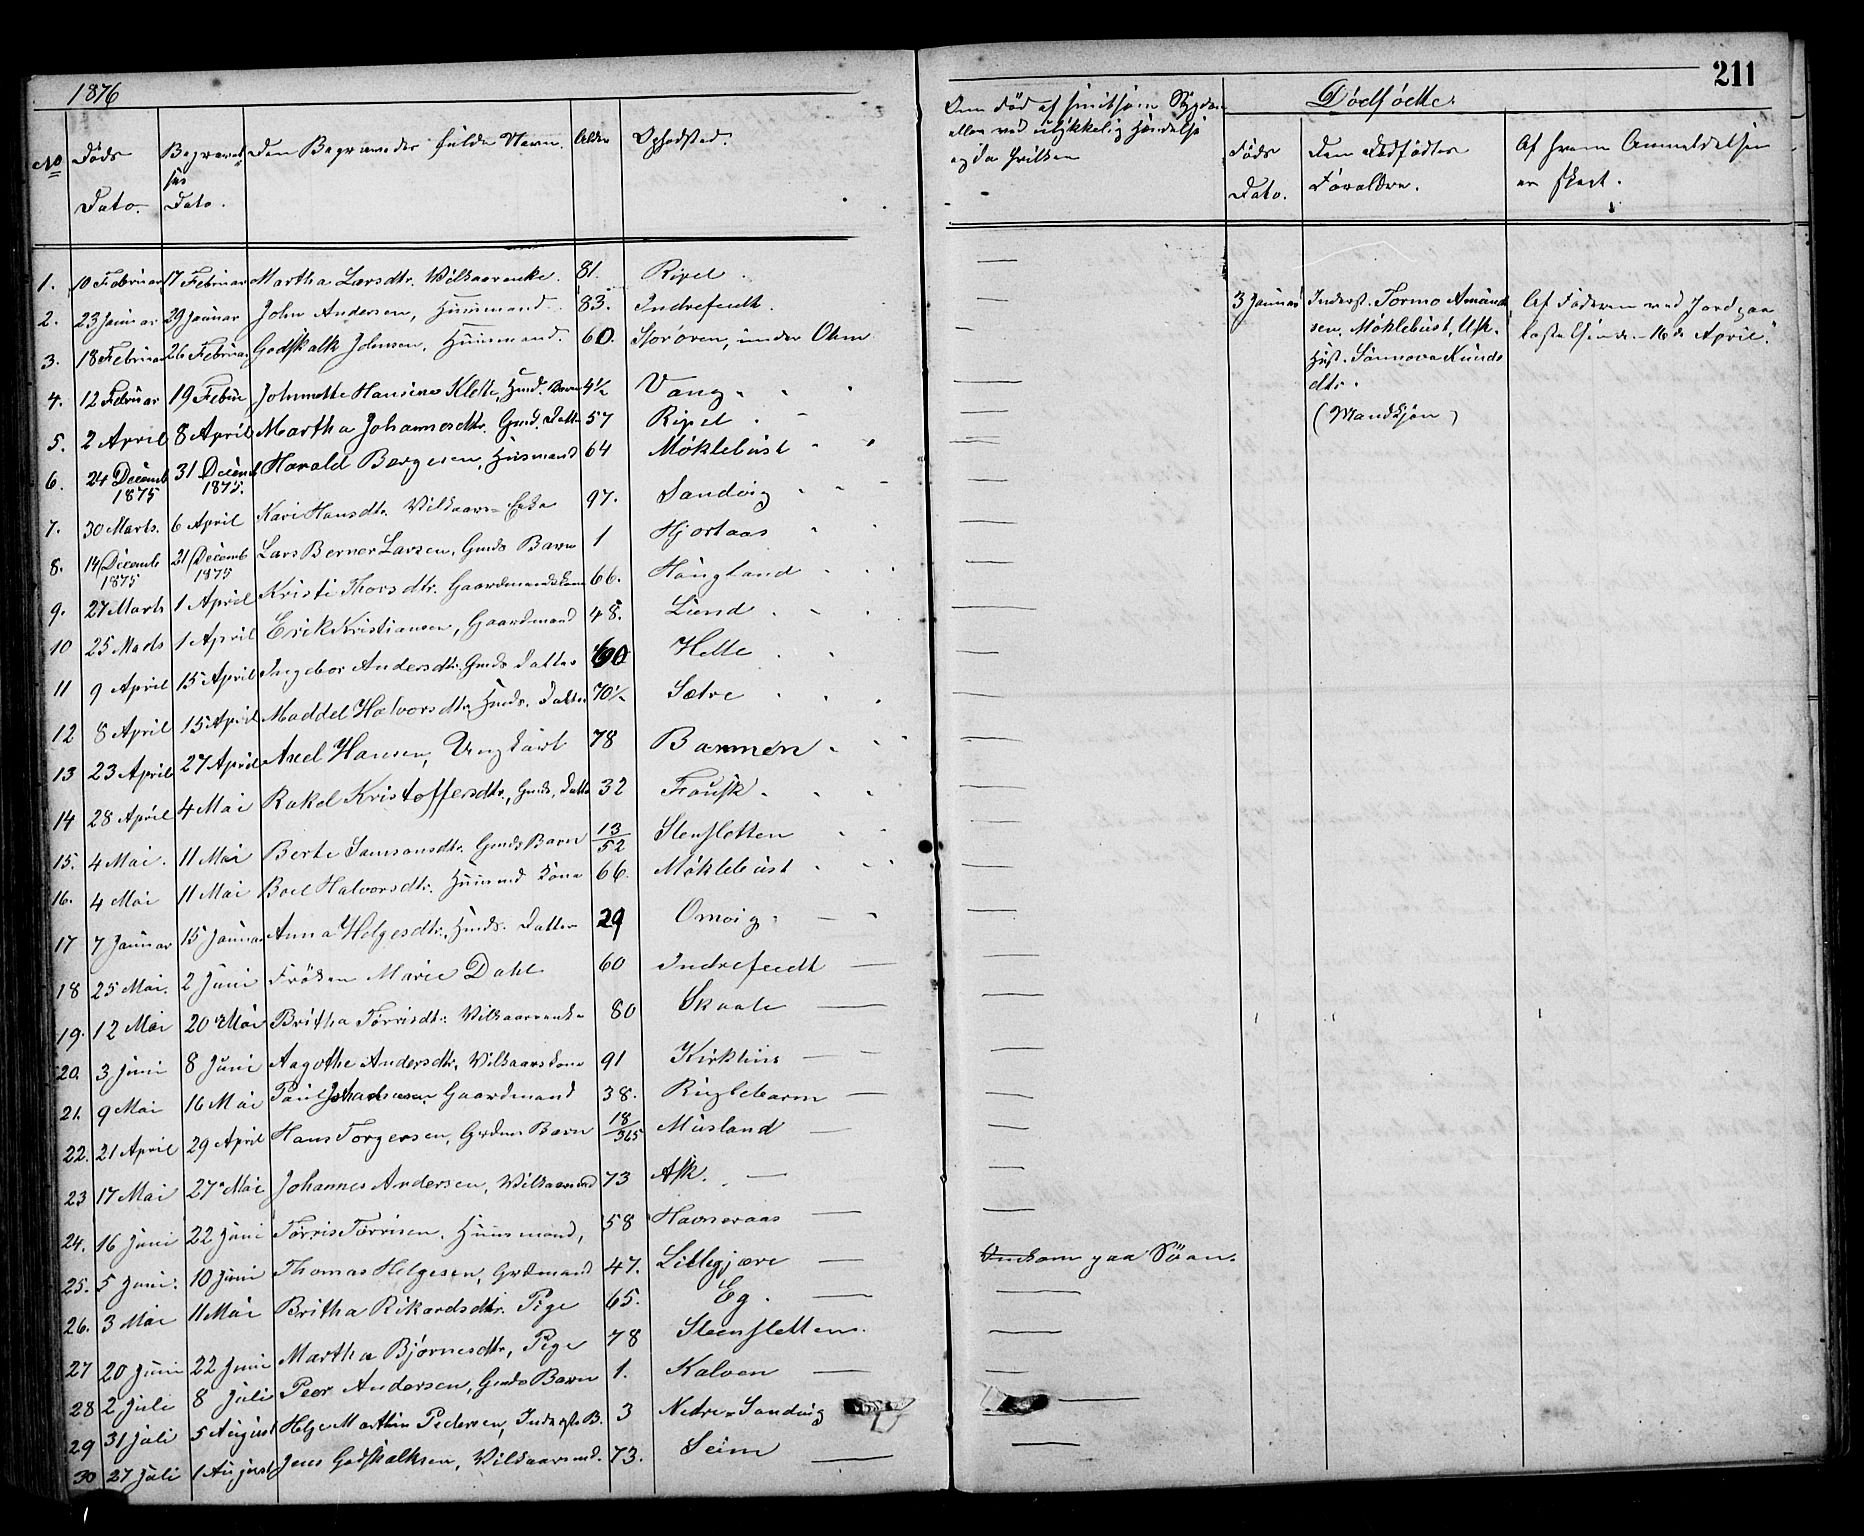 1876
211
No Døds Dato. Begravelses Dato. Den Begravedes fulde Navn. Alder Opholdsted.
Om død af smitsom Sygdom
eller ved ulykkelig Hændelse
og da hvilken
Dødfødte.
Føds Dato. Den Dødfødtes Forældre. Af hvem Anmeldelsen er skeet.
1. 10 Februar 17 Februar Martha Larsdtr. Vilkaarenke. 81. Ripel
2. 23 Januar 29 Januar John Andersen, Huusmand. 83. Indrefeidt.
3. 18 Februar 26 Februar Godskalk Johnsen, Huusmand. 60. Storøren, under Ohm
4. 12 Februar 19 Febru Johnette Hansine Klette, Hmd. Barn 4½ Vang
5. 2 April 8 April Martha Johannesdtr. Gmd. Datter 57 Ripel
6. 24 Decemb 1875 31 Decemb 1875. Harald Børgesen, Husmand 64 Møklebust
7. 30 Marts. 6 April Kari Hansdtr. Vilkaars-Enke 97. Sandvig
8. 14 Decemb 1875 21 Decemb 1875 Lars Berner Larsen, Gmds Barn 1 Hjortaas
9. 27 Marts 1 April Kristi Thorsdtr. Gaardmandskone 66. Haugland
10 25 Marts 1 April Erik Kristiansen, Gaardmand 48. Lund
11 9 April 15 April Ingebor Andersdtr. Gmds Datter 60 Helle
12 8 April 15 April Maddel Halvorsdtr Hmds. Datter 70½ Sætre
13 23 April 27 April Axel Hansen, Ungkarl 78 Barmen
14 28 April 4 Mai Rakel Kristoffersdtr., Gmds. Datter 32 Fausk.
15. 4 Mai. 11 Mai Berte Samsonsdtr. Gmds Barn 13/52 Stensletten
16. 4 Mai 11 Mai Boel Halvorsdtr. Huusmd Kone 66. Møklebust
17 7 Januar 15 Januar Anna Helgesdtr., Hmds. Datter 29 Omvig
18 25 Mai. 2 Juni Frøken Marie Dahl 60 Indrefeidt
19. 12 Mai 20 Mai Britha Tørrisdtr. Vilkaarsenke 80 Skaale
20. 3 Juni 8 Juni Aagothe Andersdtr, Vilkaarskone 91 Kirkhus
21. 9 Mai 16 Mai Paul Johannesen Gaardmand 38. Ruglebarm
22. 21 April 29 April Hans Torgersen, Grdms Barn 18/365 Musland
23 17 Mai 27 Mai Johannes Andersen, Vilkaarsmd 73 Ask.
24. 16 Juni 22 Juni Tørris Tørrisen. Huusmand, 58 Havneraas
25. 5 Juni. 10 Juni Thomas Helgesen, Grdmand 47. Lillegjære Omkom paa Søen.
26. 3 Mai 11 Mai Britha Rikardsdtr. Pige 65. Eg.
27 20 Juni 22 Juni Martha Bjørnesdtr, Pige 78 Steensletten.
28 2 Juli 8 Juli Peer Andersen, Gmds Barn 1. Kalven
29 31 Juli 5 August Helge Marthin Pedersen, Inderste B. 3 Nedre Sandvig
30 27 Juli 1 August Jens Godskalksen, Vilkaarsmd. 73. Seim
3 Januar Inderst. Tormo Amund
sen, Møklebust, Ask.
Hust. Sønnova Knuds
dtr.
(Mandkjøn)
Af Faderen ved Jordpaa
kastelsen den 16de April.